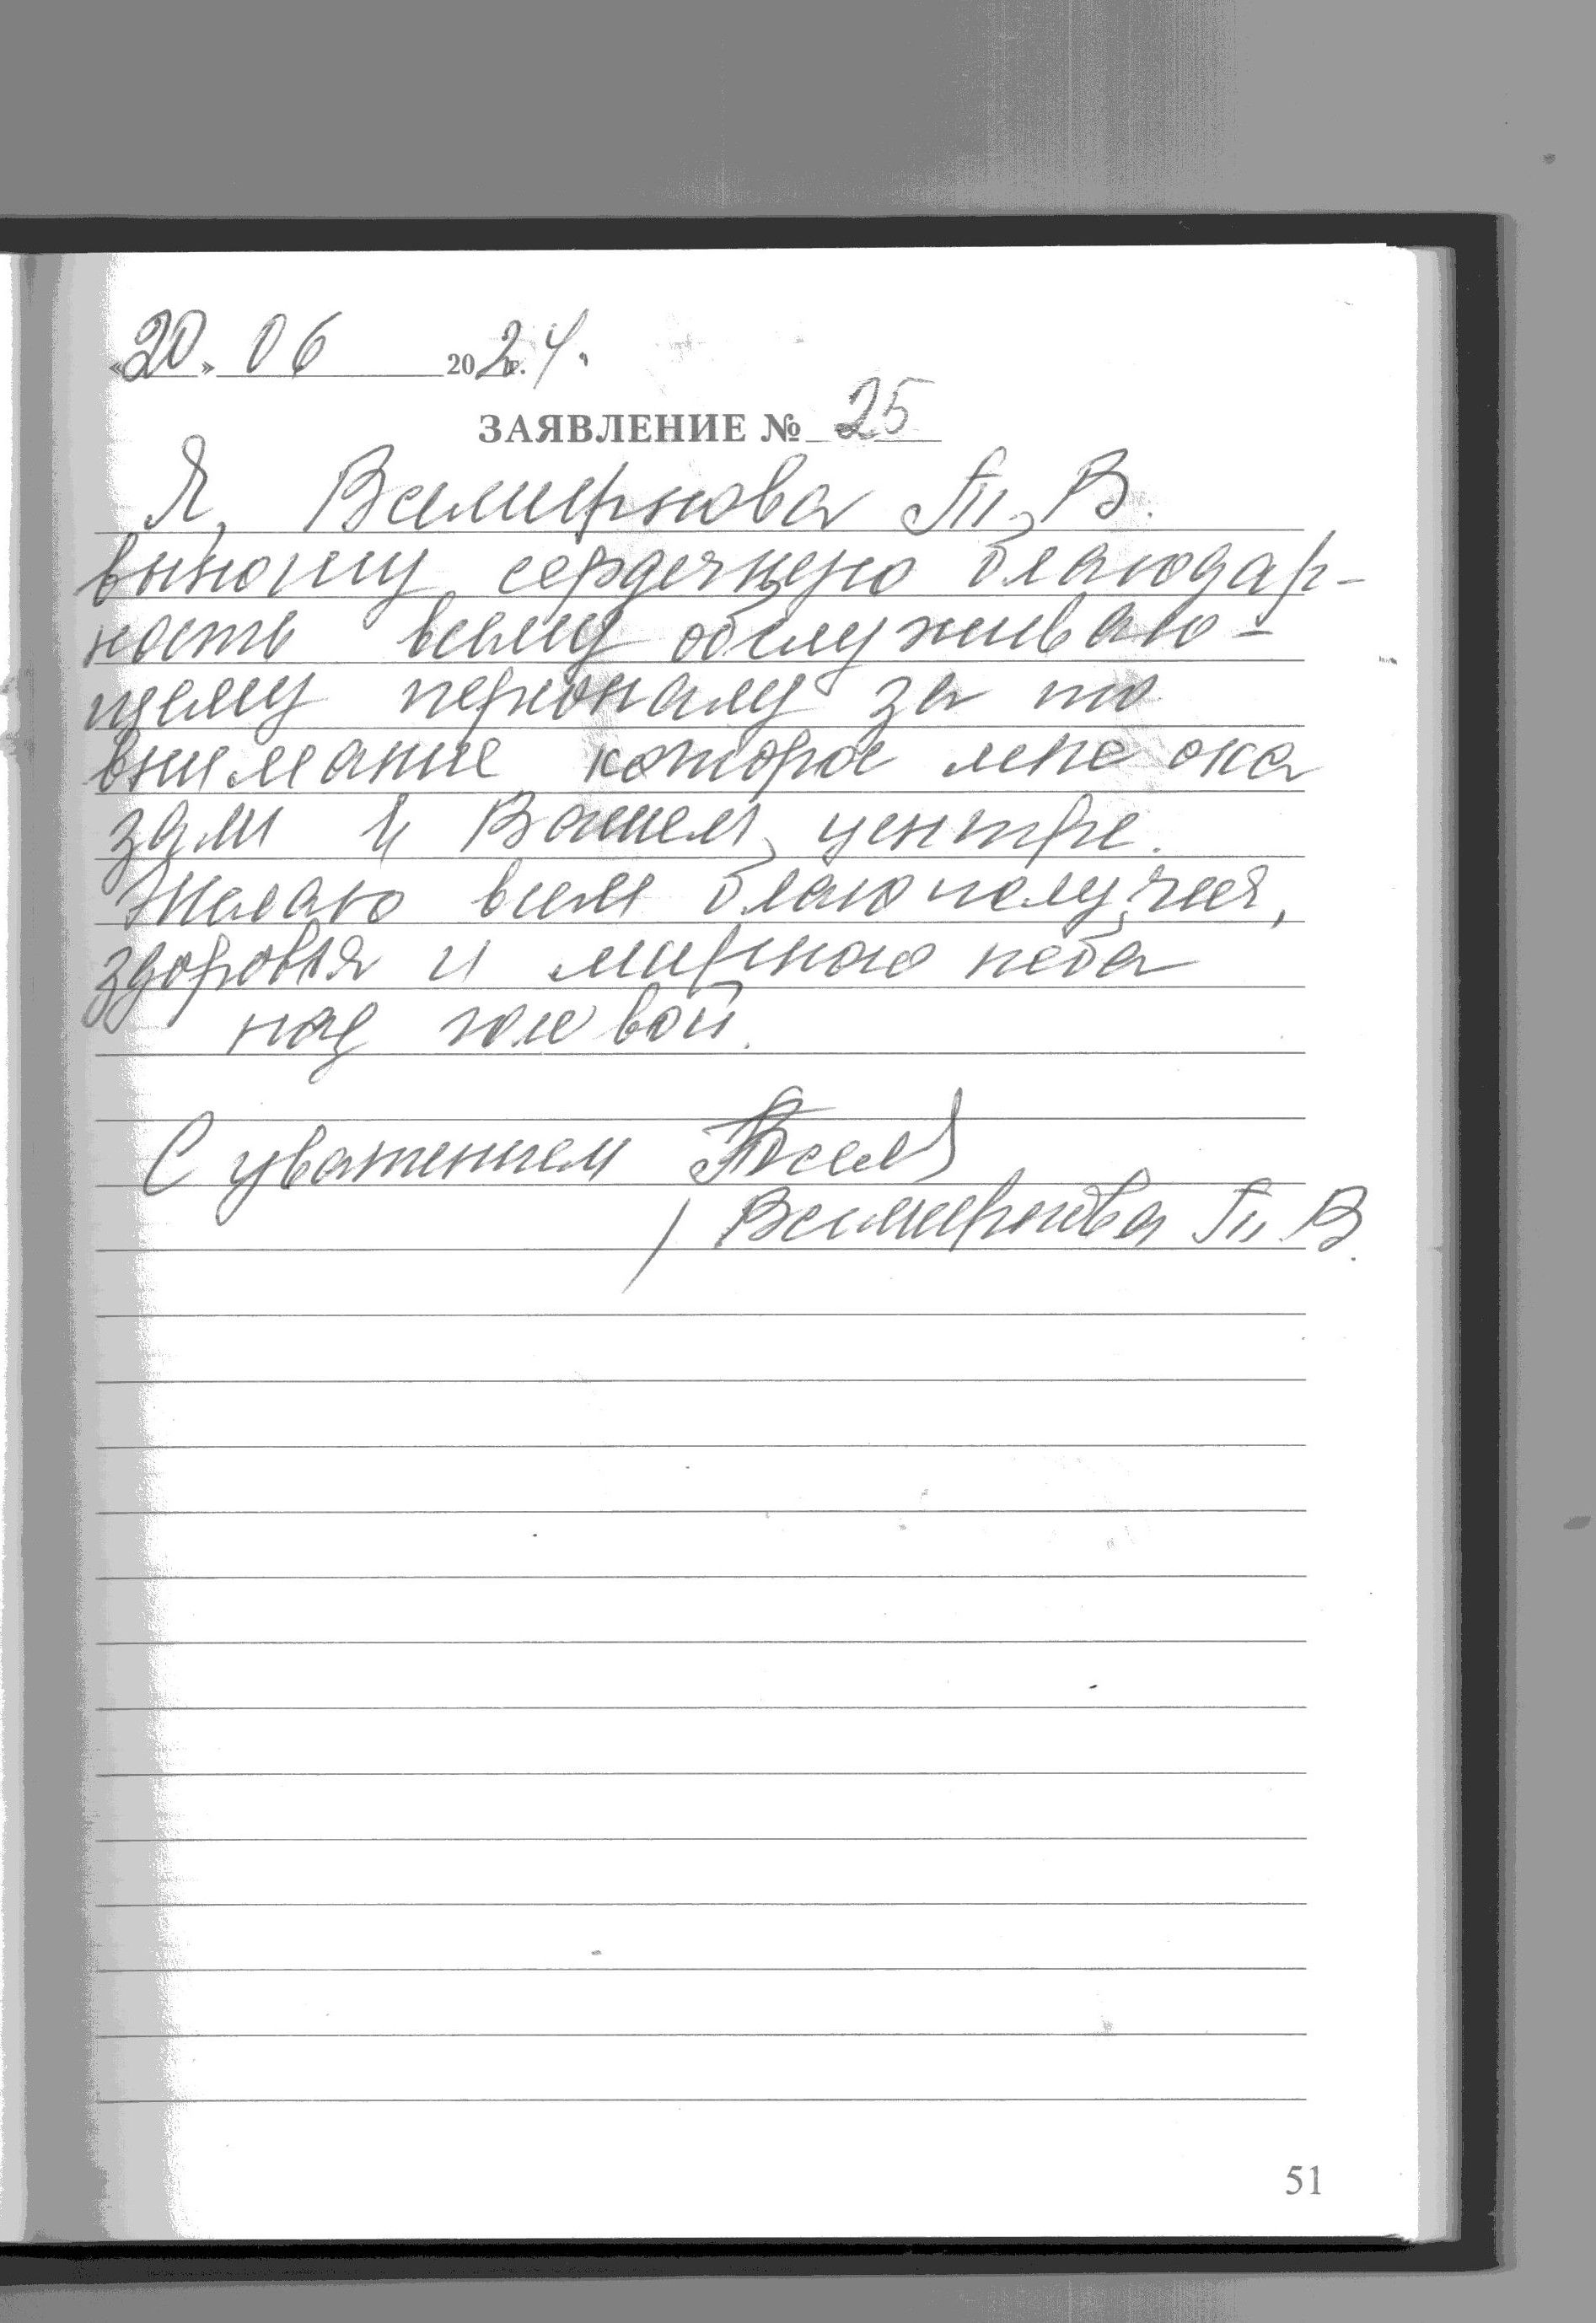 «20» 06 2024 г.
ЗАЯВЛЕНИЕ № 25
Я, Т. В.
выношу сердечную благодар-
ность всему обслуживаю-
щему персоналу за то
внимание которое мне ока
зали в Вашем центре.
Желаю всем благополучия,
здоровья и мирного неба
над головой.
С уважением
/ Т. В.
51